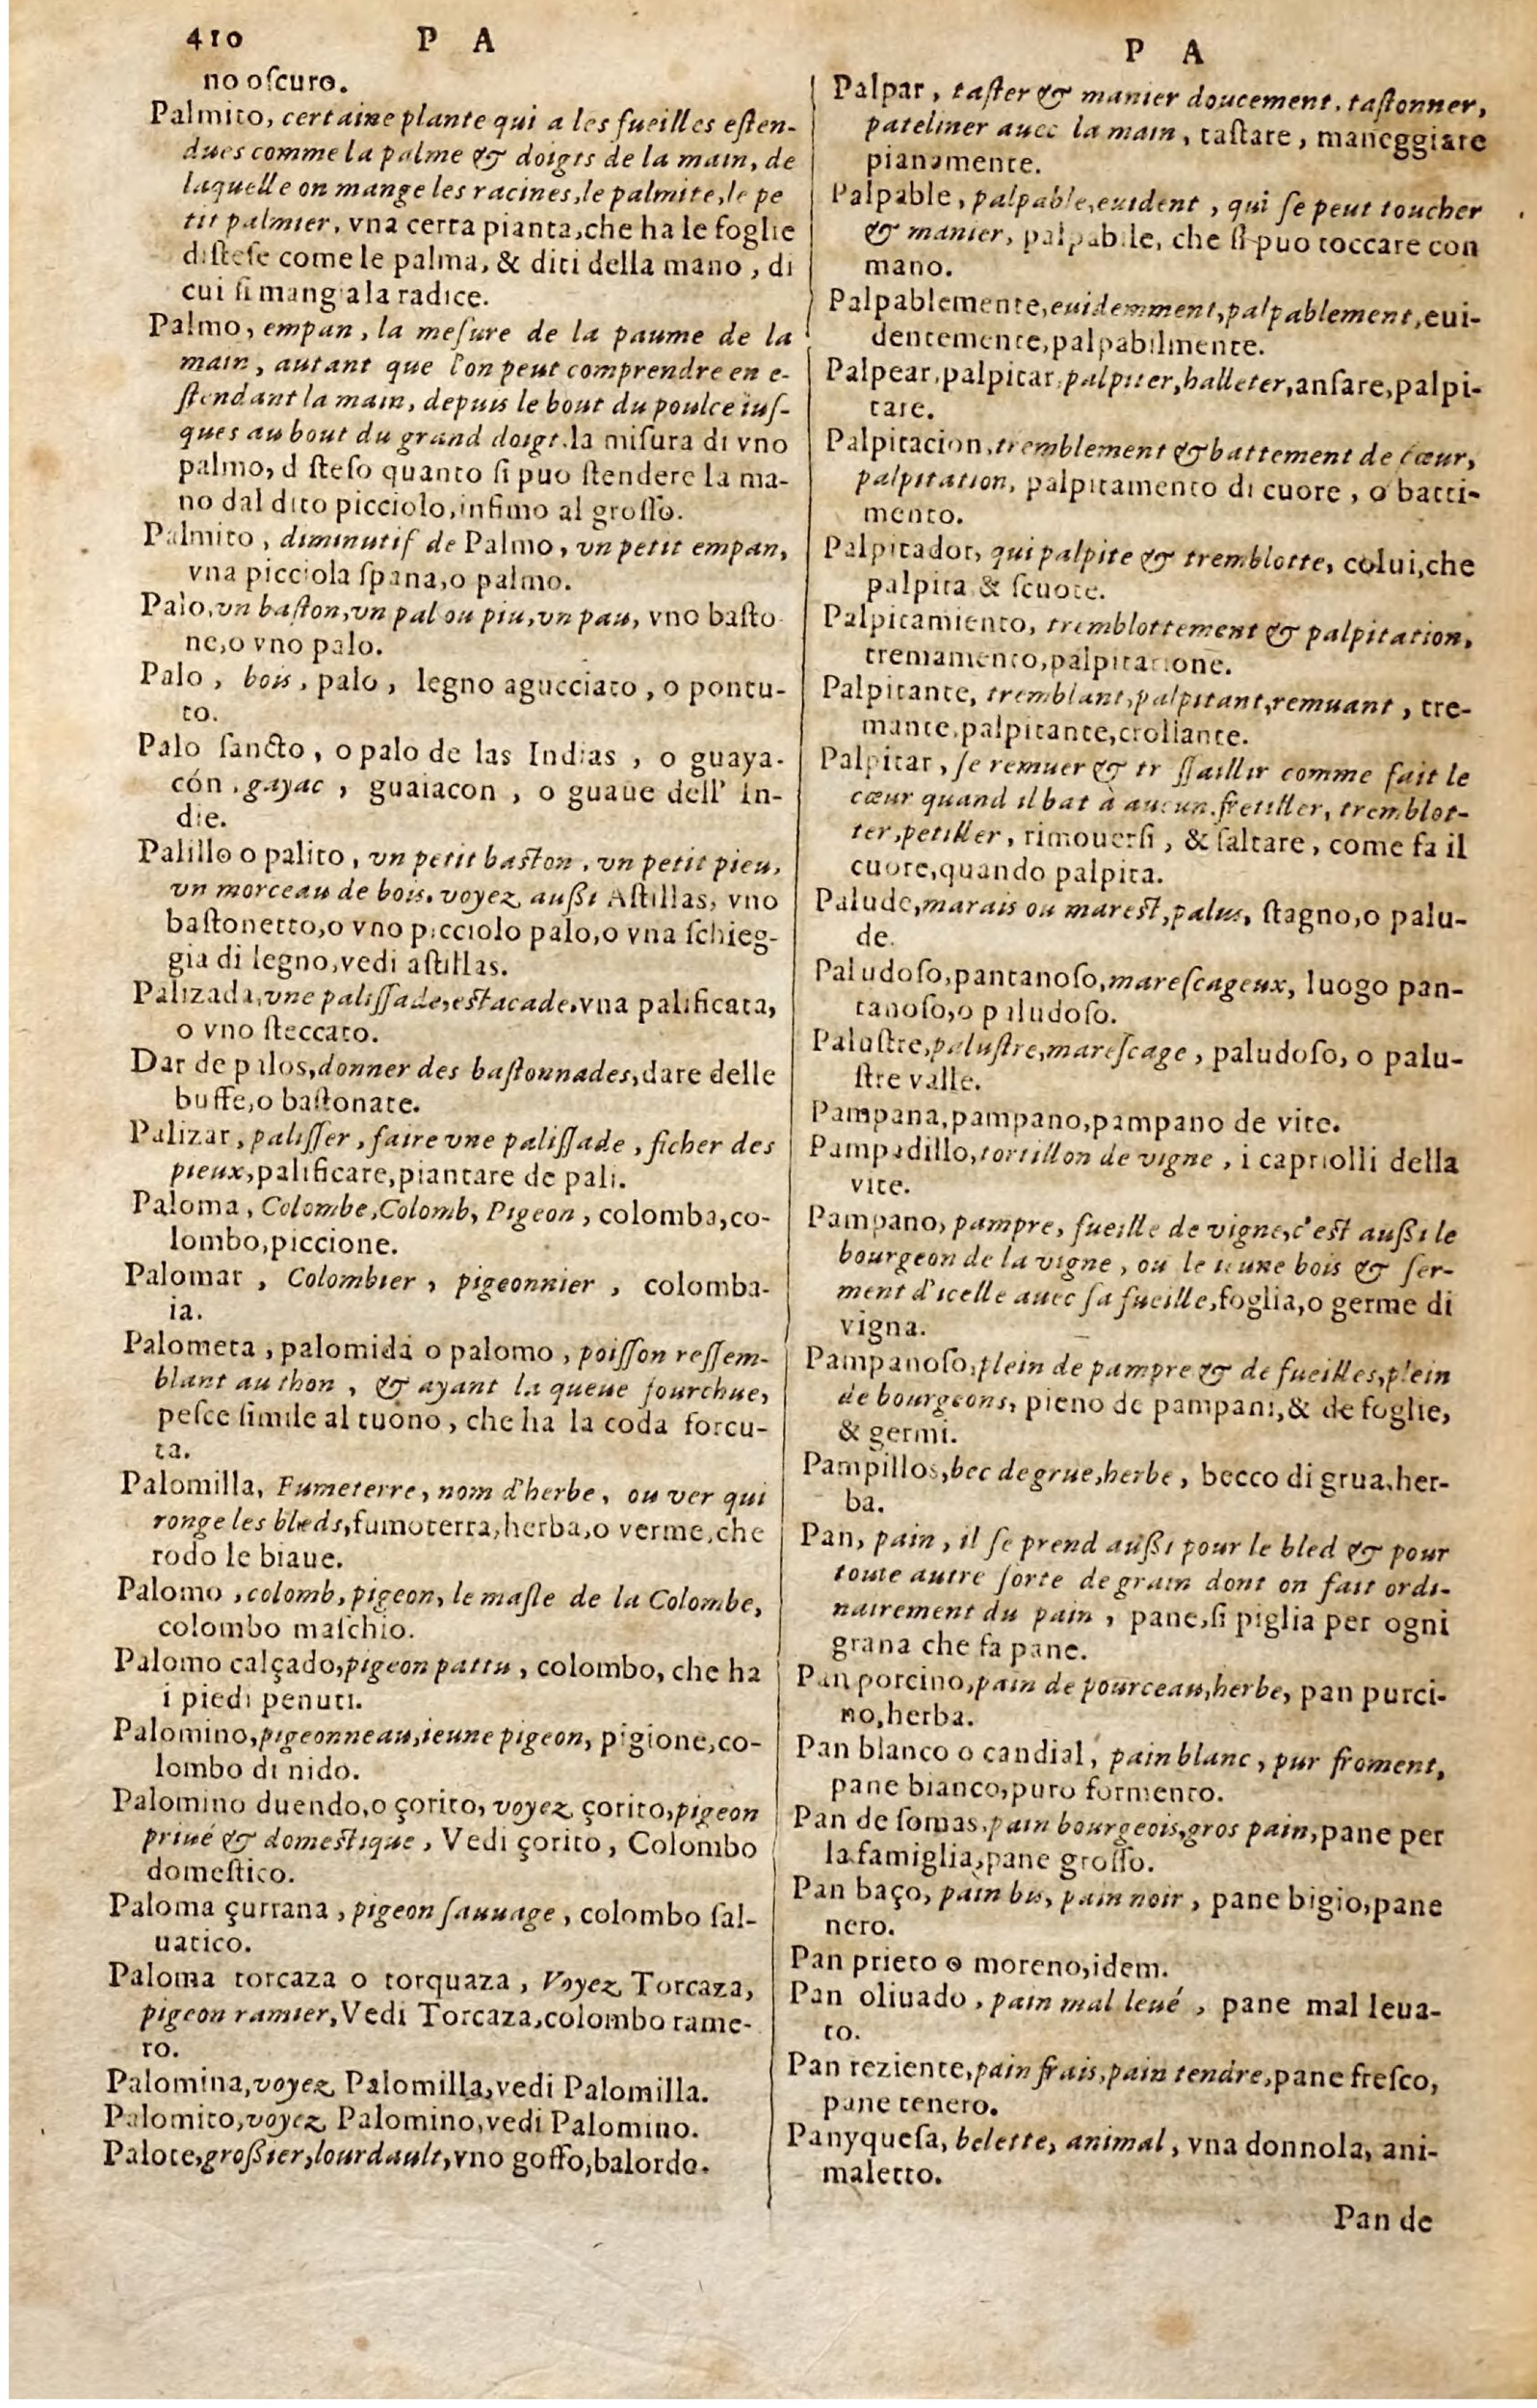 410 P A
no oſcuro.
Palmito, certaine plante qui a les fueilles eſten-
dues comme la palme & doigts de la main, de
laquelle on mange les racines, le palmite, le pe
tit palmier, vna certa pianta, che ha le foglie
diſteſe come le palma, & diti della mano, di
cui ſi mangia la radice.
Palmo, empan, la meſure de la paume de la
main, autant que l'on peut comprendre en e-
ſtendant la main, depuis le bout du poulce iuſ-
ques au bout du grand doigt. la miſura di vno
palmo, d ſteſo quanto ſi puo ſtendere la ma-
no dal dito picciolo, infimo al groſſo.
Palmito, diminutif de Palmo, vn petit empan,
vna picciola ſpana, o palmo.
Palo, vn baſton, vn pal ou piu, vn pau, vno baſto
ne, o vno palo.
Palo, bois, palo, legno agucciato, o pontu-
to.
Palo ſancto, o palo de las Indias, o guaya-
cón, gayac, guaiacon, o guaue dell' In-
die.
Palillo o palito, vn petit baston, vn petit pieu,
vn morceau de bois. voyez außi Aſtillas, vno
baſtonetto, o vno picciolo palo, o vna ſchieg-
gia di legno, vedi aſtillas.
Palizada, vne paliſſade, estacade. vna palificata,
o vno ſteccato.
Dar de palos, donner des baſtonnades, dare delle
buffe, o baſtonate.
Palizar, paliſſer, faire vne paliſſade, ficher des
pieux, palificare, piantare de pali.
Paloma, Colombe, Colomb, Pigeon, colomba, co-
lombo, piccione.
Palomar, Colombier, pigeonnier, colomba-
ia.
Palometa, palomida o palomo, poiſſon reſſem-
blant au thon, & ayant la queue fourchue,
peſce ſimile al tuono, che ha la coda forcu-
ta.
Palomilla, Fumeterre, nom d'herbe, ou ver qui
ronge les bleds, fumoterra, herba, o verme, che
rodo le biaue.
Palomo, colomb, pigeon, le maſle de la Colombe,
colombo maſchio.
Palomo calçado, pigeon pattu, colombo, che ha
i piedi penuti.
Palomino, pigeonneau, ieune pigeon, pigione, co-
lombo di nido.
Palomino duendo, o çorito, voyez çorito, pigeon
priué & domestique, Vedi çorito, Colombo
domeſtico.
Paloma çurrana, pigeon ſauuage, colombo ſal-
uatico.
Paloma torcaza o torquaza, Voyez Torcaza,
pigeon ramier, Vedi Torcaza, colombo rame-
ro.
Palomina, voyez Palomilla, vedi Palomilla.
Palomito, voyez Palomino, vedi Palomino.
Palote, großier, lourdault, vno goffo, balordo.
P A
Palpar, taſter & manier doucement. taſtonner,
pateliner auec la main, taſtare, maneggiare
pianamente.
Palpable, palpable, euident, qui ſe peut toucher
& manier, palpabile, che ſi puo toccare con
mano.
Palpablemente, euidemment, palpablement, eui-
dentemente, palpabilmente.
Palpear, palpitar, palpiter, halleter, anſare, palpi-
tare.
Palpitacion, tremblement & battement de cœur,
palpitation, palpitamento di cuore, o batti-
mento.
Palpitador, qui palpite & tremblotte, colui, che
palpita & ſcuote.
Palpitamiento, tremblottement & palpitation,
tremamento, palpitatione.
Palpitante, tremblant, palpitant, remuant, tre-
mante, palpitante, crollante.
Palpitar, ſe remuer & tr ſſaillir comme fait le
cœur quand il bat à aucun. fretiller, tremblot-
ter, petiller, rimouerſi, & ſaltare, come fa il
cuore, quando palpita.
Palude, marais ou marest, palus, ſtagno, o palu-
de.
Paludoſo, pantanoſo, mareſcageux, luogo pan-
tanoſo, o paludoſo.
Paluſtre, paluſtre, mareſcage, paludoſo, o palu-
ſtre valle.
Pampana, pampano, pampano de vite.
Pampadillo, tortillon de vigne, i capriolli della
vite.
Pampano, pampre, fueille de vigne, c'est außi le
bourgeon de la vigne, ou le ieune bois & ſer-
ment d'icelle auec ſa fueille, foglia, o germe di
vigna.
Pampanoſo, plein de pampre & de fueilles, plein
de bourgeons, pieno de pampani, & de foglie,
& germi.
Pampillos, bec de grue, herbe, becco di grua, her-
ba.
Pan, pain, il ſe prend außi pour le bled & pour
toute autre ſorte de grain dont on fait ordi-
nairement du pain, pane, ſi piglia per ogni
grana che fa pane.
Pan porcino, pain de pourceau, herbe, pan purci-
no, herba.
Pan blanco o candial, pain blanc, pur froment,
pane bianco, puro formento.
Pan de ſomas, pain bourgeois, gros pain, pane per
la famiglia, pane groſſo.
Pan baço, pain bis, pain noir, pane bigio, pane
nero.
Pan prieto o moreno, idem.
Pan oliuado, pain mal leué, pane mal leua-
to.
Pan reziente, pain frais, pain tendre, pane freſco,
pane tenero.
Panyqueſa, belette, animal, vna donnola, ani-
maletto.
Pan de